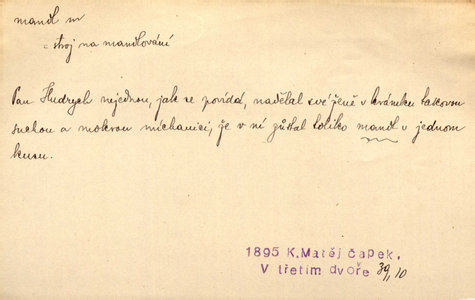 mandl m
= stroj na mandlování
Pan Hudrych nejednou, jak se povídá, nadělal své ženě v krámku takovou
suchou a mokrou míchanici, že v ní zůstal toliko mandl v jednom
kusu.
1895 K. Matěj Čapek,
V třetím dvoře 39, 10